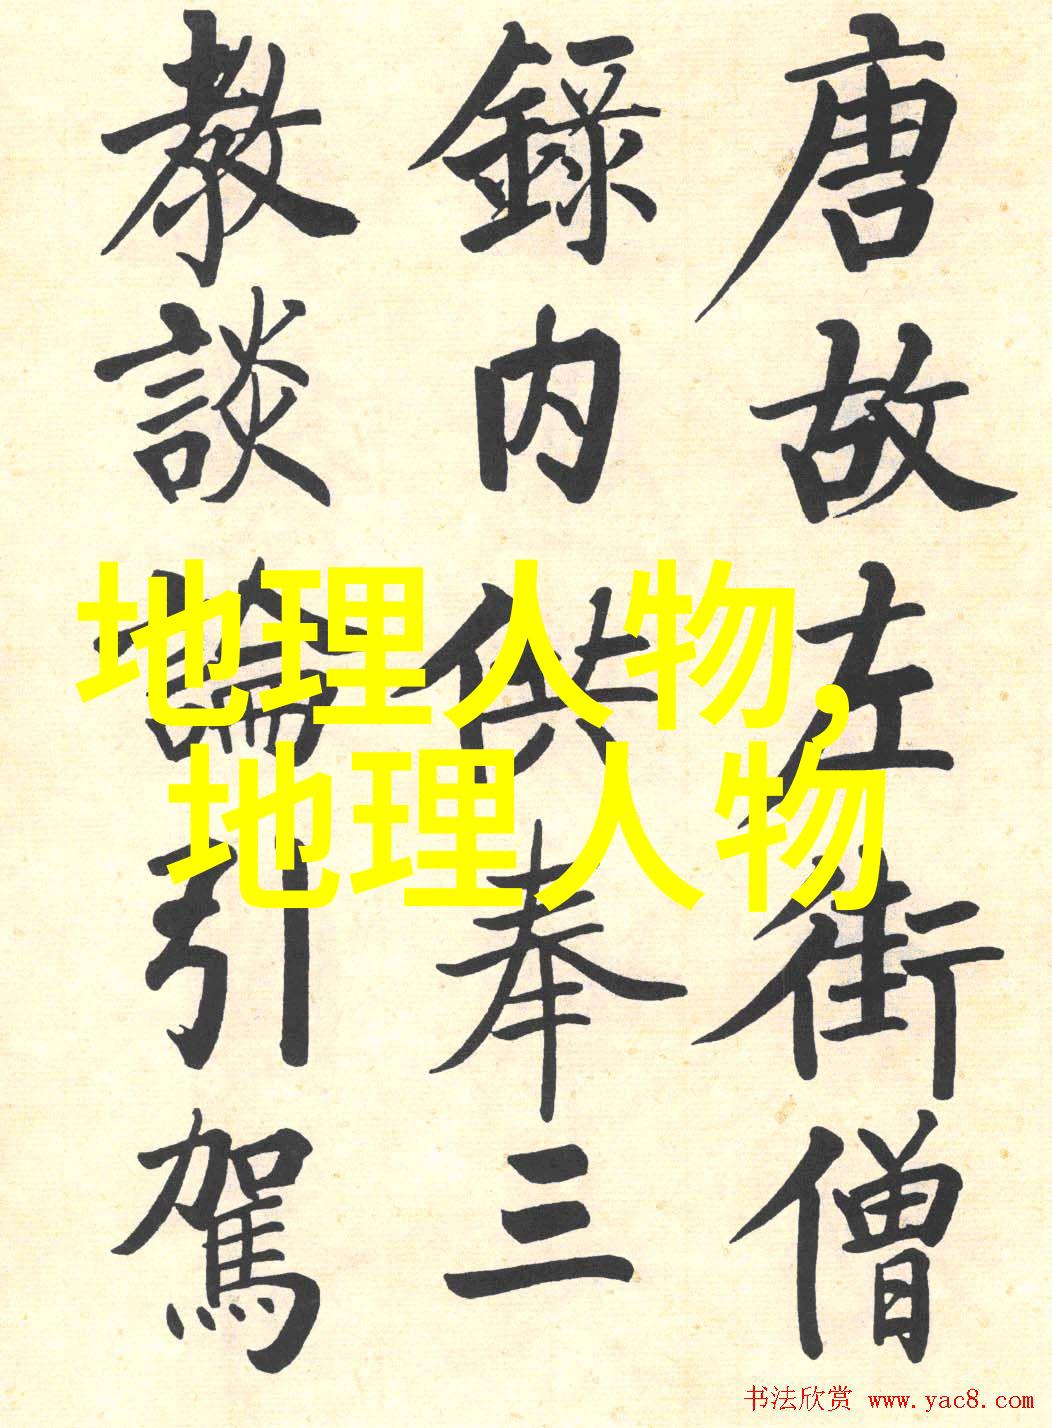 唐故左街僧
錄内供奉三
教談論引駕
地理人物,
地理人物
书法欣赏 www.yac8.com